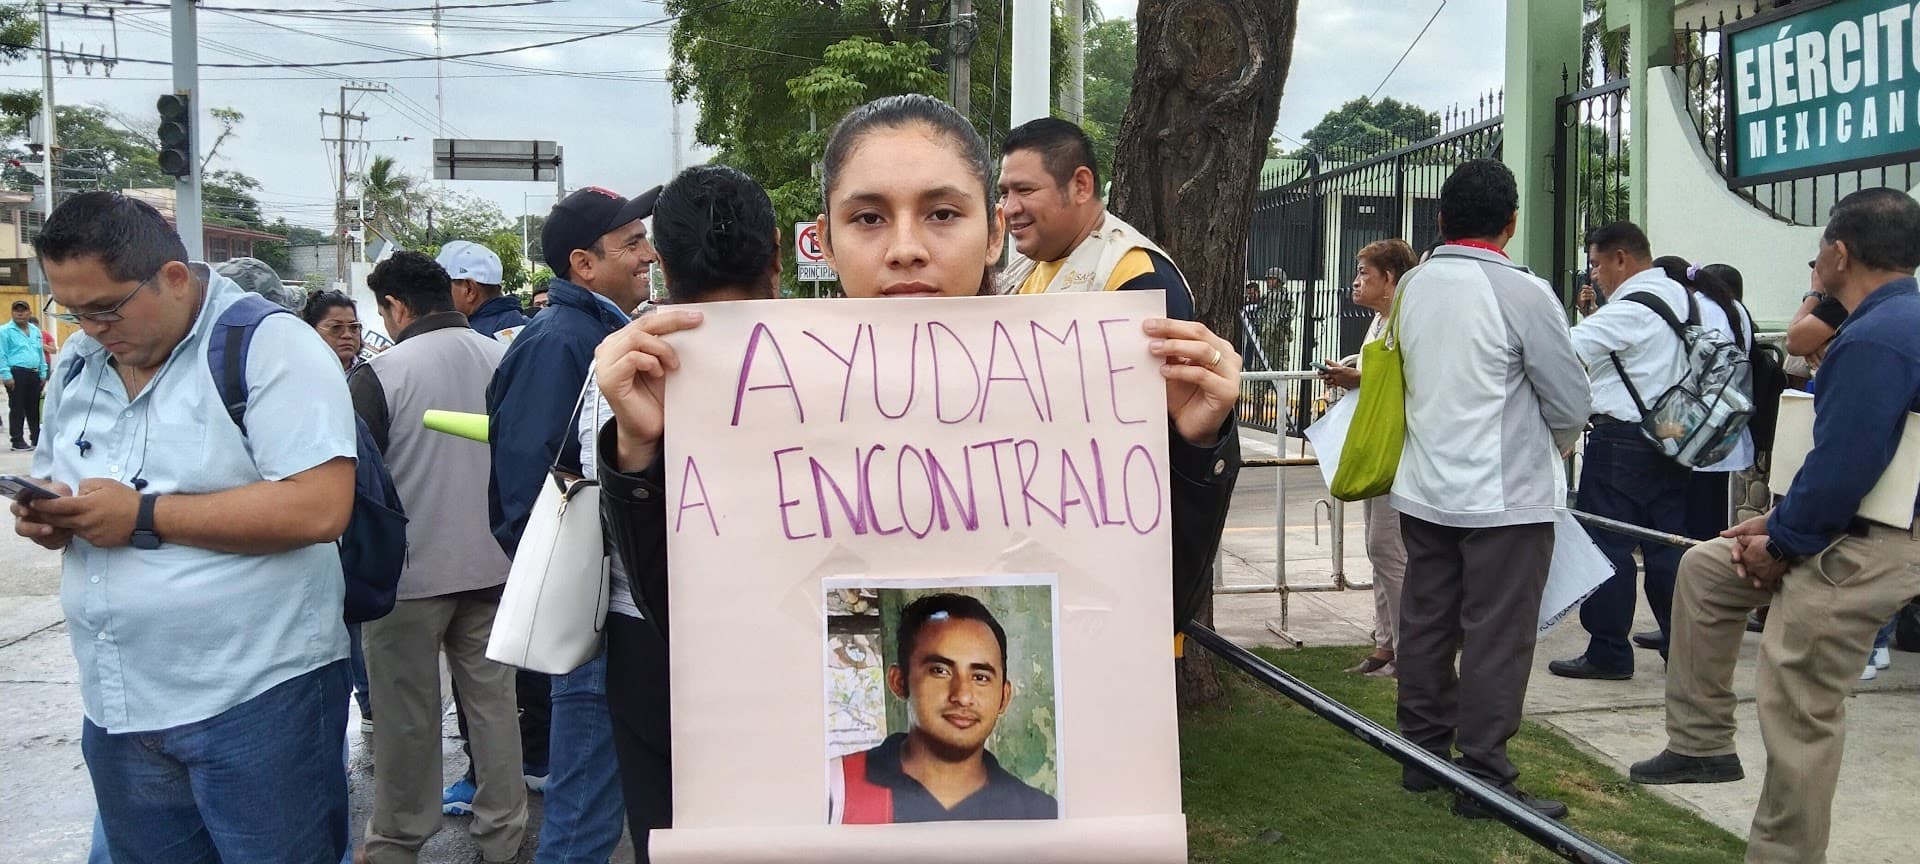 EJÉRCITO
MEXICANO
PRINCIPIA
AYUDAME
A ENCONTRALO